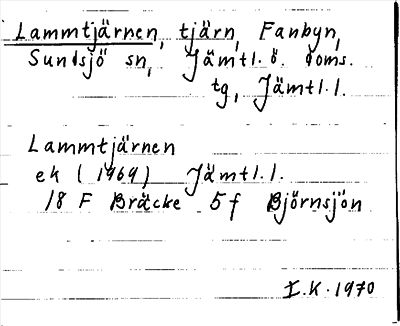 Lammtjärnen, tjärn, Fanbyn,
Sundsjö sn, Jämtl. ö. doms.
tg, Jämtl. l.
Lammtjärnen
ek (1969) Jämtl. l.
18 F Bräcke 5 f Björnsjön
I.K. 1970